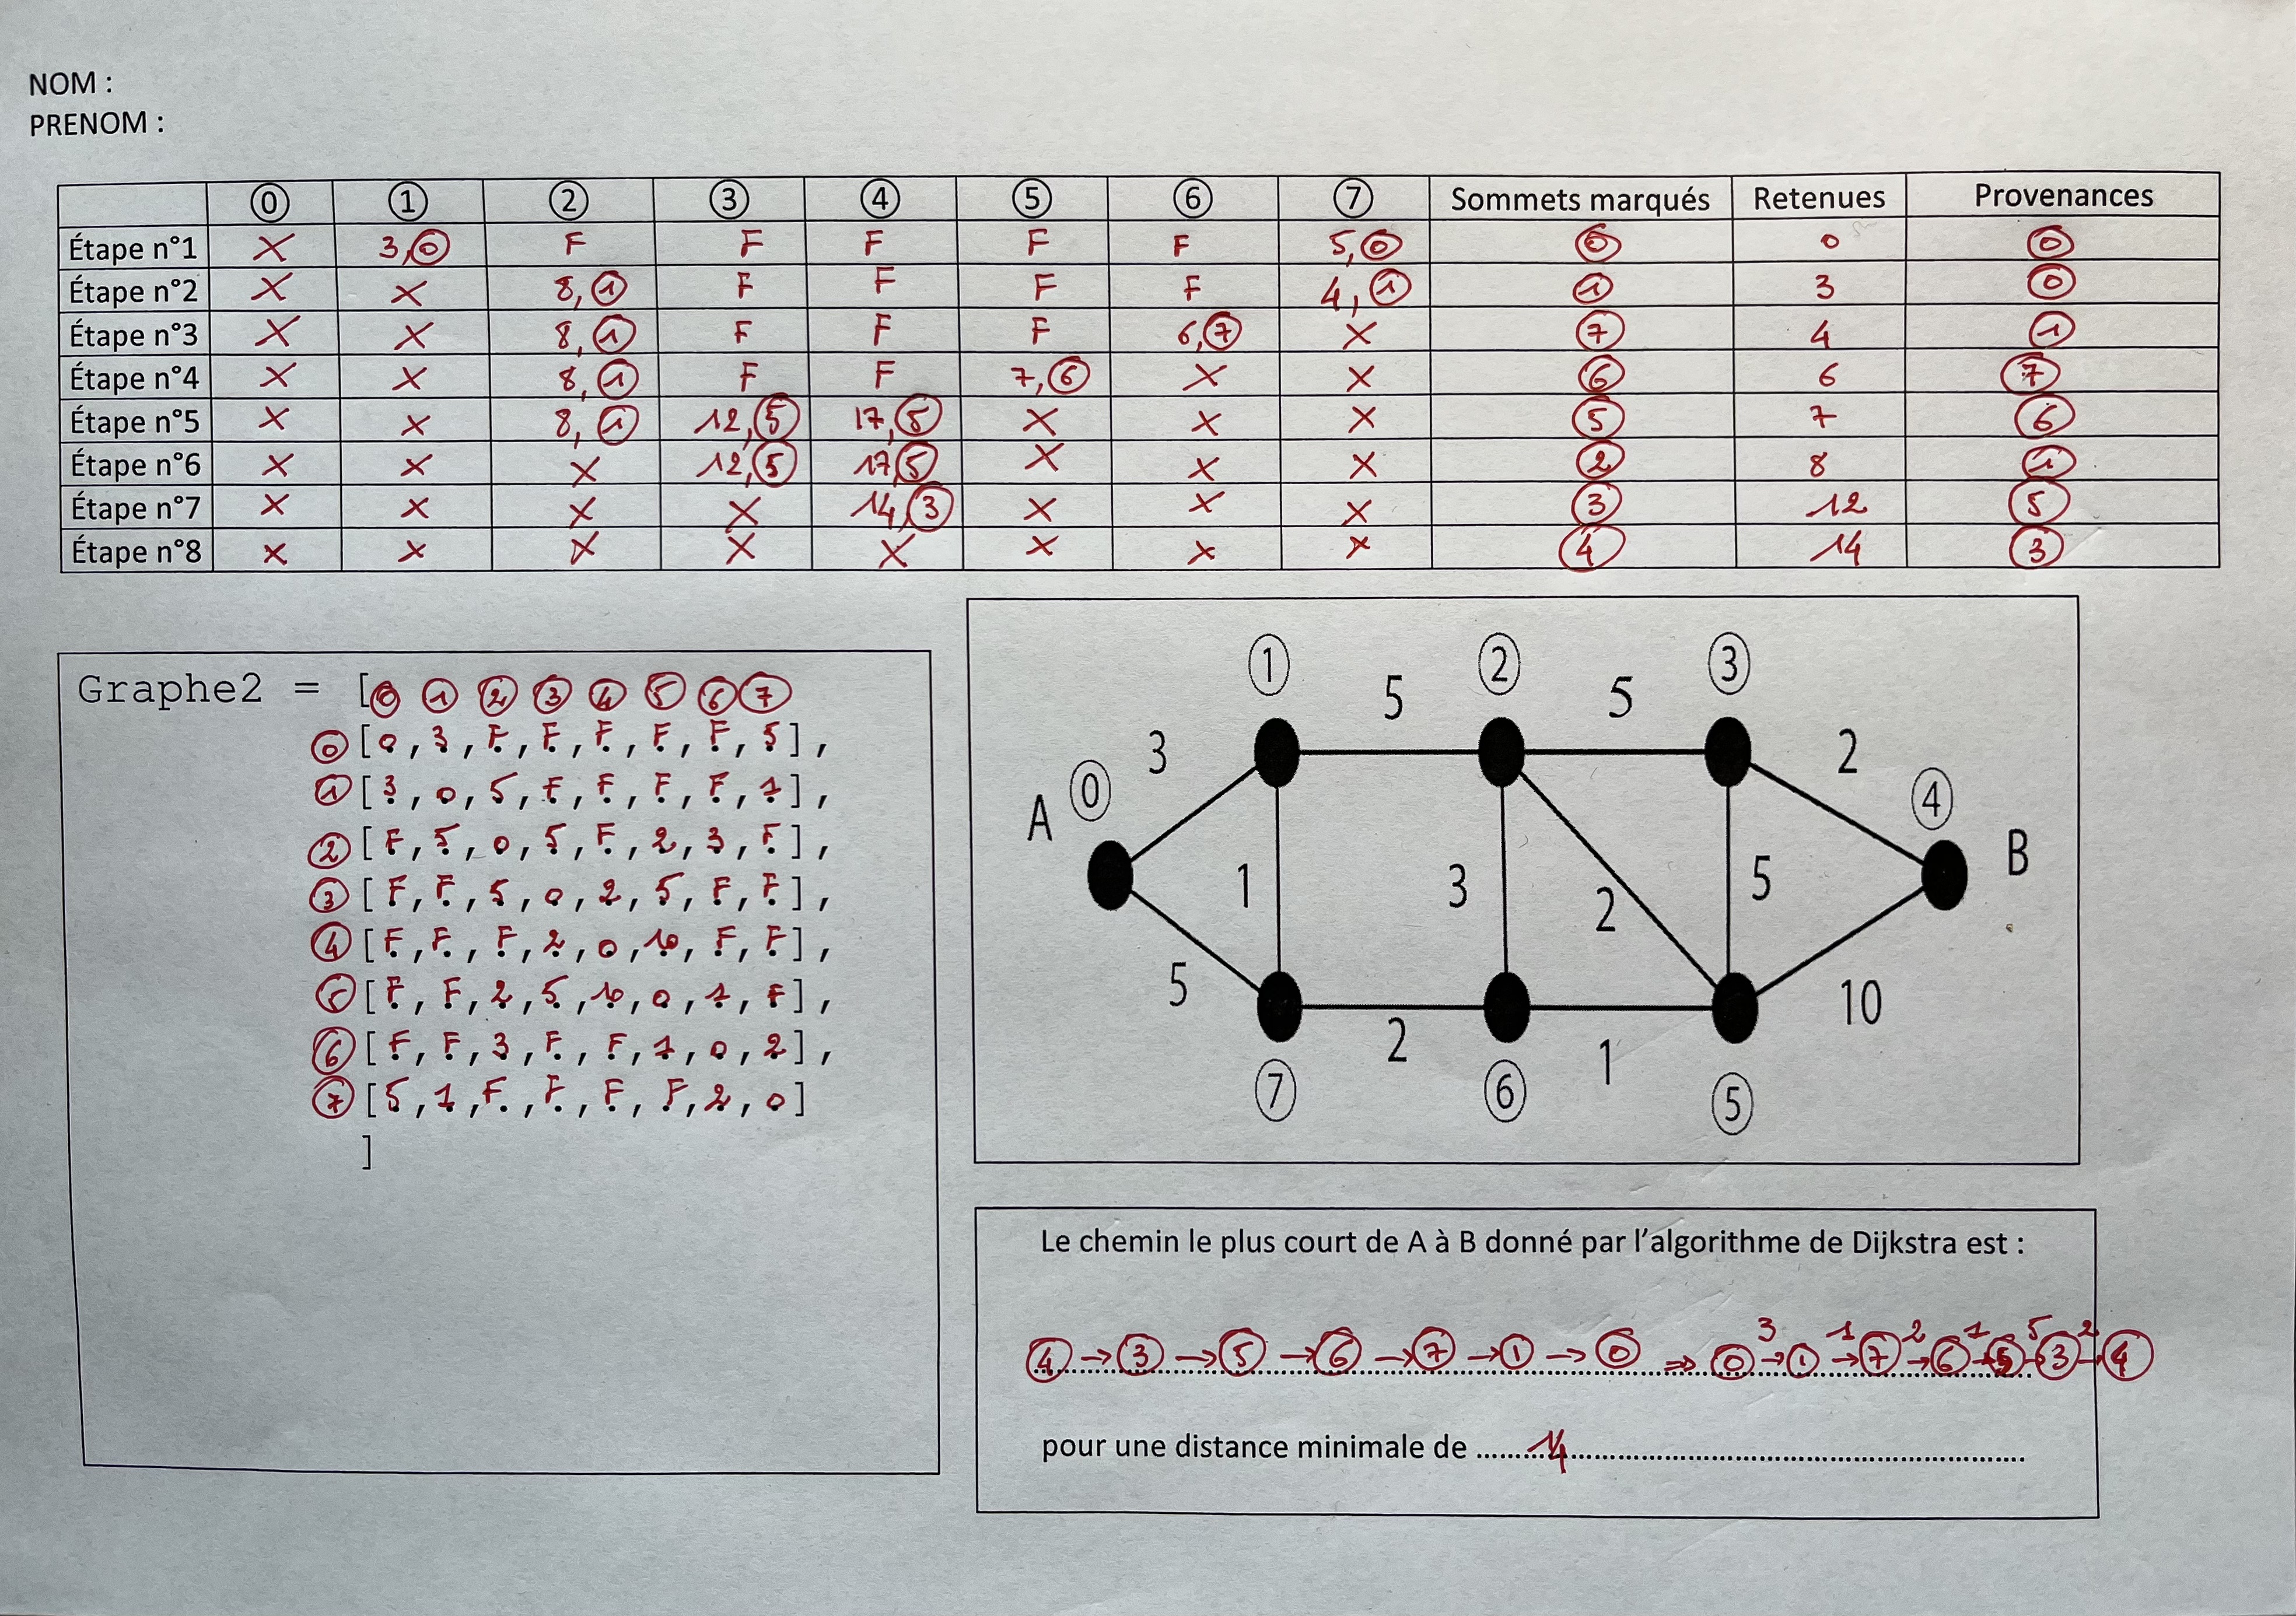 NOM :
PRENOM :
⓪ ① ② ③ ④ ⑤ ⑥ ⑦ Sommets marqués Retenues Provenances
Étape n°1 X 3,⓪ F F F F F 5,⓪ ⓪ 0 ⓪
Étape n°2 X X 8,① F F F F 4,① ① 3 ⓪
Étape n°3 X X 8,① F F F 6,⑦ X ⑦ 4 ①
Étape n°4 X X 8,① F F 7,⑥ X X ⑥ 6 ⑦
Étape n°5 X X 8,① 12,⑤ 17,⑤ X X X ⑤ 7 ⑥
Étape n°6 X X X 12,⑤ 17,⑤ X X X ② 8 ①
Étape n°7 X X X X 14,③ X X X ③ 12 ⑤
Étape n°8 X X X X X X X X ④ 14 ③
Graphe2 = [⓪ ① ② ③ ④ ⑤ ⑥ ⑦
⓪ [0, 3, F, F, F, F, F, 5],
① [3, 0, 5, F, F, F, F, 1],
② [F, 5, 0, 5, F, 2, 3, F],
③ [F, F, 5, 0, 2, 5, F, F],
④ [F, F, F, 2, 0, 10, F, F],
⑤ [F, F, 2, 5, 10, 0, 1, F],
⑥ [F, F, 3, F, F, 1, 0, 2],
⑦ [5, 1, F, F, F, F, 2, 0]
]
① ② ③
5 5
3 2
A ⓪ ④
B
1 3 2 5
5 10
2 1
⑦ ⑥ ⑤
Le chemin le plus court de A à B donné par l'algorithme de Dijkstra est :
3 1 2 1 5 2
④ → ③ → ⑤ → ⑥ → ⑦ → ① → ⓪ ⇒ ⓪ → ① → ⑦ → ⑥ → ⑤ → ③ → ④
pour une distance minimale de ......14......